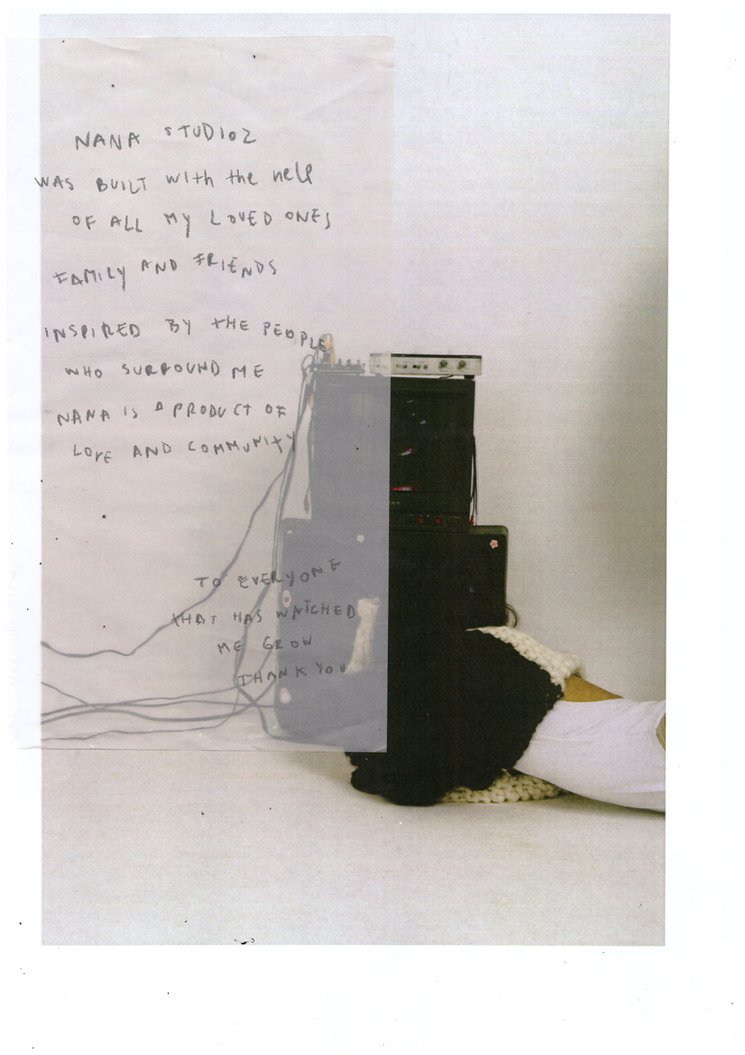 NANA STUDIOZ
WAS BUILT With the help
OF ALL My LOVED ONES
FAMILY AND FRIENDS
INSPIRED BY THE PEOPLE
WHO SURROUND ME
NANA IS A PRODUCT OF
LOVE AND COMMUNITY
TO EVERYONE
THAT HAS WATCHED
ME GROW
THANK YOU